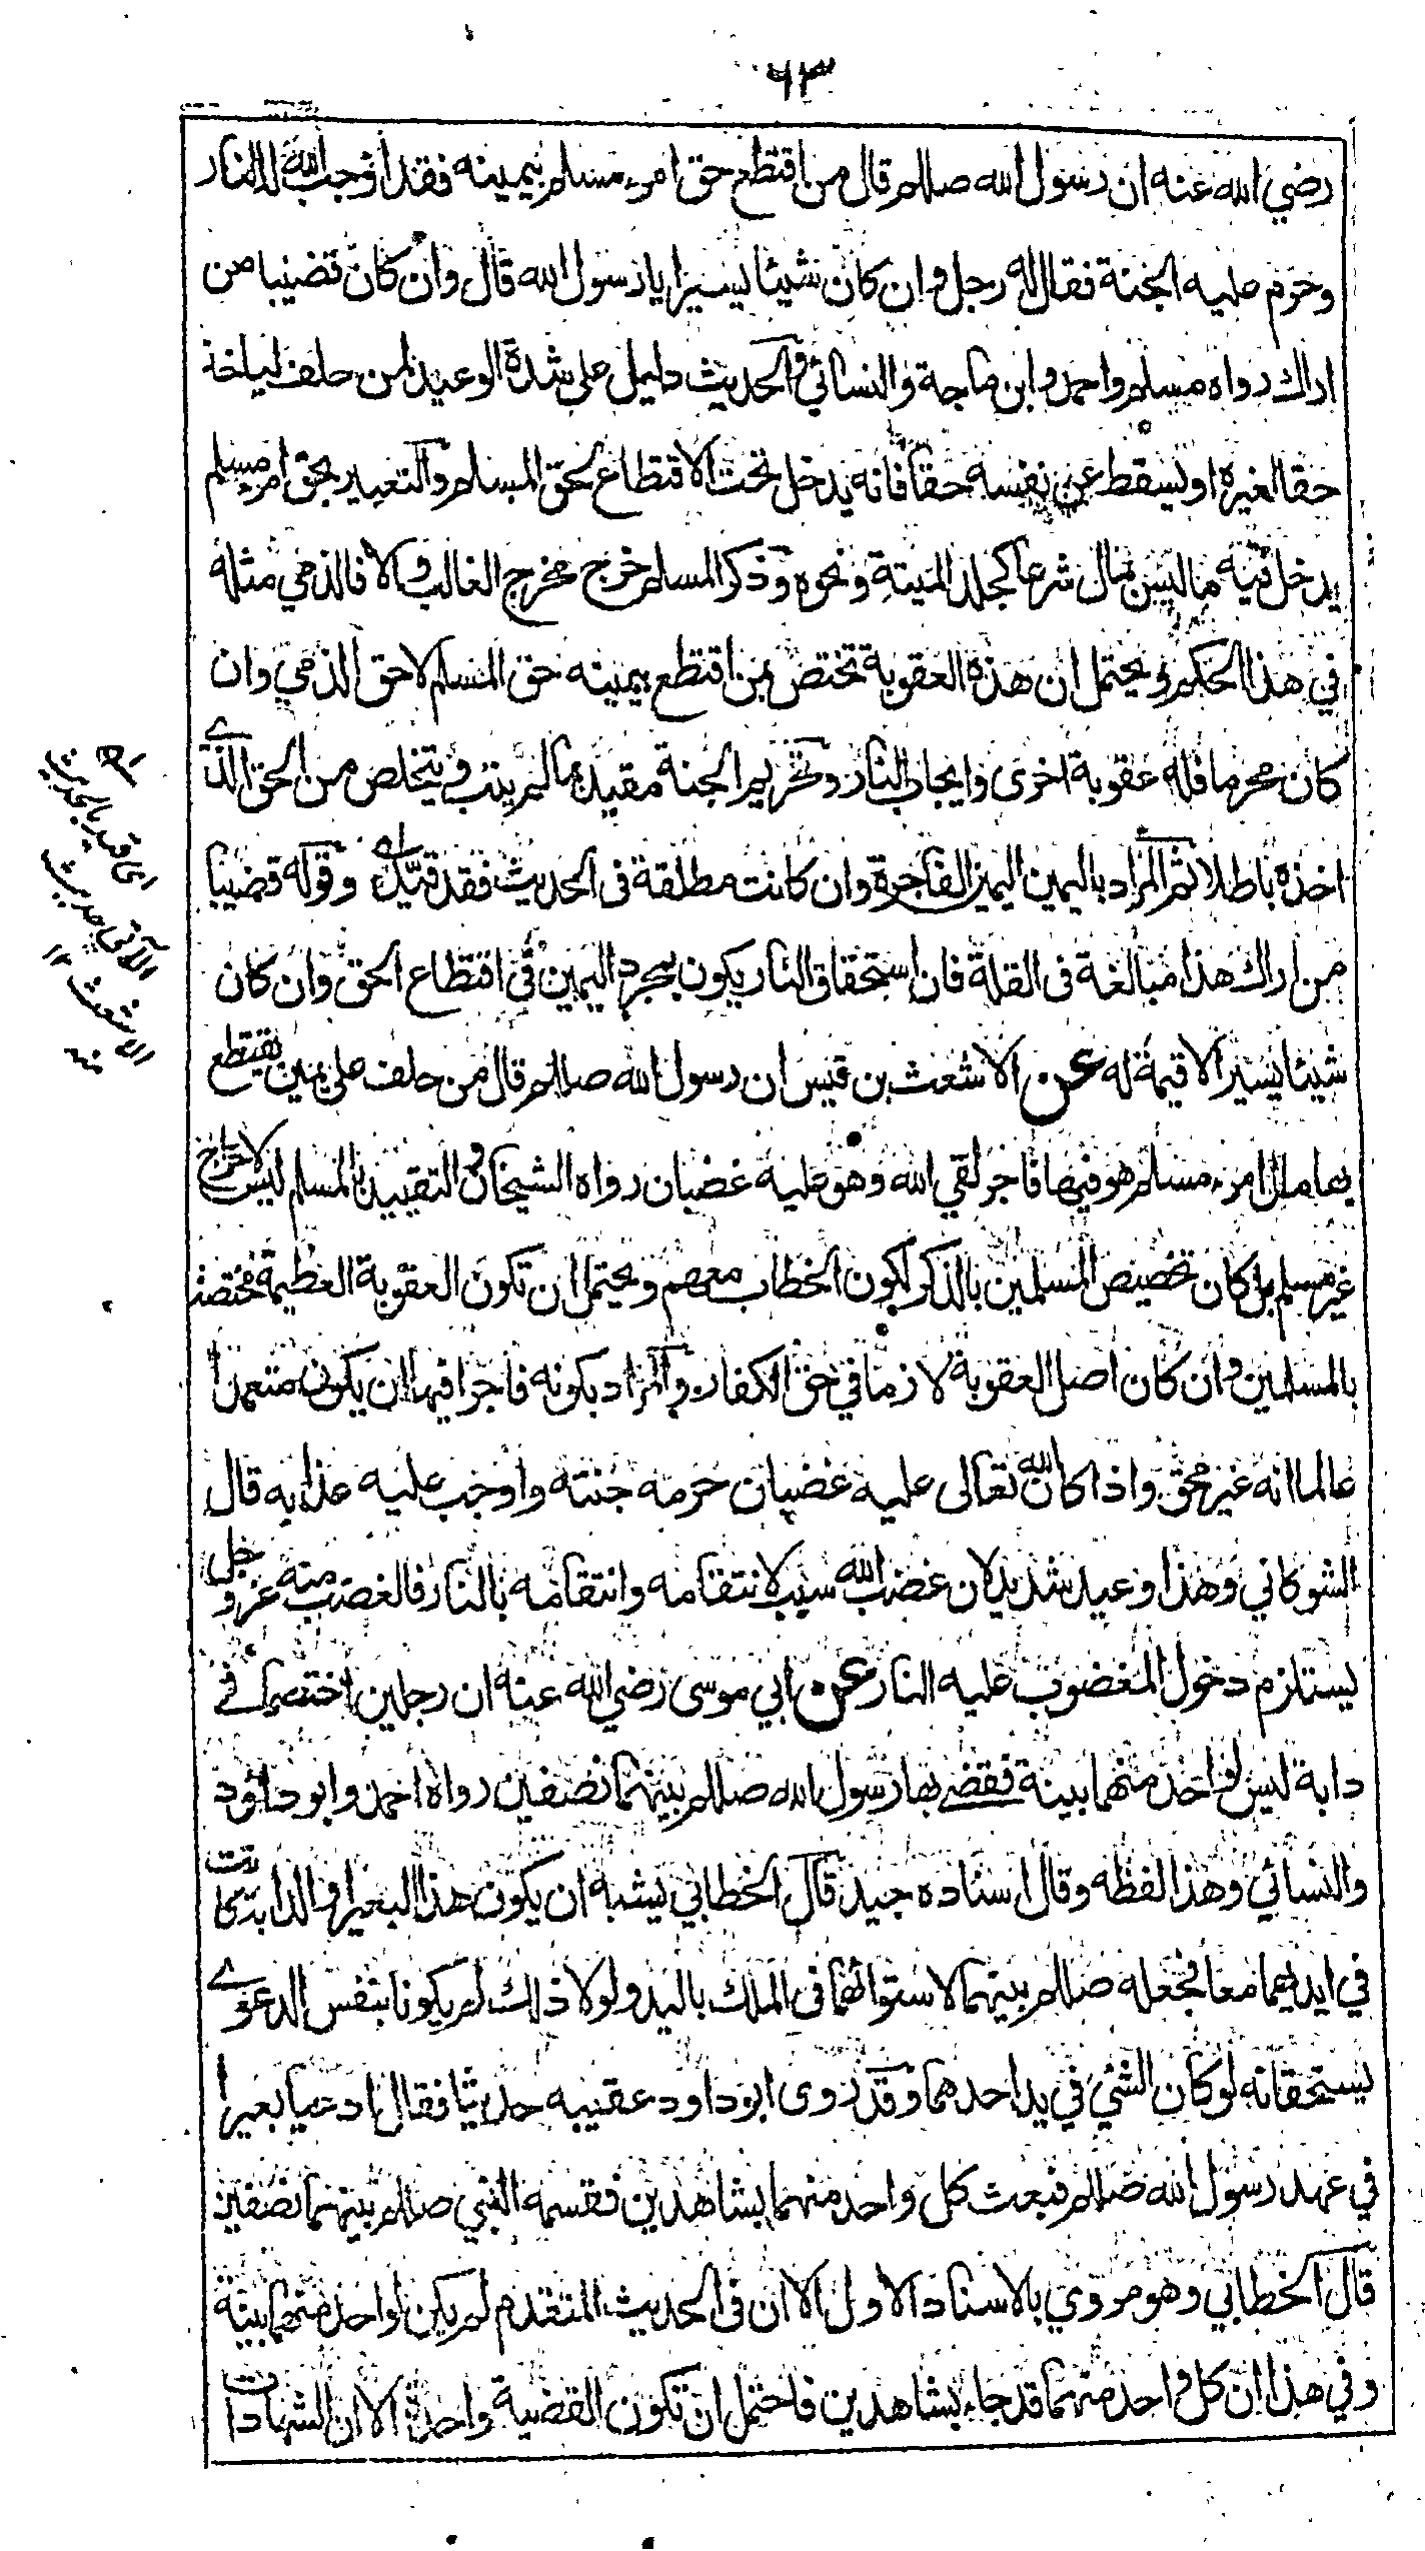 ٦٣
رضي الله عنه ان رسول الله صللم قال من اقتطع حق امرء مسلم بيمينه فقد اوجب الله له النار
وحرم عليه الجنة فقال له رجل وان كان شيئا يسيرا يا رسول الله قال وان كان قضيبا من
اراك رواه مسلم واحمد وابن ماجة والنسائي والحديث دليل على شدة الوعيد لمن حلف لياخذ
حقا لغيره او يسقط عن نفسه حقا فانه يدخل تحت الاقتطاع لحق المسلم والتعبير بحق امرء مسلم
يدخل فيه ما ليس بمال شرعا كجلد الميتة ونحوه وذكر المسلم خرج مخرج الغالب والا فالذمي مثله
في هذا الحكم ويحتمل ان هذه العقوبة تختص بمن اقتطع بيمينه حق المسلم لا حق الذمي وان
كان محرما فله عقوبة اخرى وايجاب النار وتحريم الجنة مقيد بما لم يتب ويتخلص من الحق الذے
اخذه باطلا ثم المراد باليمين اليمين الفاجرة وان كانت مطلقة في الحديث فقد قيد وقوله قضيبا
من اراك هذا مبالغة في القلة فان استحقاق النار يكون بمجرد اليمين في اقتطاع الحق وان كان
شيئا يسيرا لا قيمة له عن الاشعث بن قيس ان رسول الله صللم قال من حلف على يمين يقتطع
بها مال امرء مسلم هو فيها فاجر لقي الله وهو عليه غضبان رواه الشيخان والتقييد بالمسلم ليس لاخراج
غير مسلم بل كان تخصيص المسلمين بالذكر لكون الخطاب معهم ويحتمل ان تكون العقوبة العظيمة مختصة
بالمسلمين وان كان اصل العقوبة لازما في حق الكفار والمراد بكونه فاجرا فيها ان يكون متعمدا
عالما انه غير محق واذا كان الله تعالى عليه غضبان حرمه جنته واوجب عليه عذابه قال
الشوكاني وهذا وعيد شديد لان غضب الله سبب لانتقامه وانتقامه بالنار فالغضب منه عز وجل
يستلزم دخول المغضوب عليه النار عن ابي موسى رضي الله عنه ان رجلين اختصما في
دابة ليس لواحد منهما بينة فقضے بها رسول الله صللم بينهما نصفين رواه احمد وابو داؤد
والنسائي وهذا لفظه وقال اسناده جيد قال الخطابي يشبه ان يكون هذا البعير او الدابة كانت
في ايديهما معا فجعله صللم بينهما لاستوائهما في الملك باليد ولولا ذلك لم يكونا بنفس الدعوے
يستحقانه لو كان الشئ في يد احدهما وقد روى ابو داود عقيبه حديثا فقال ادعيا بعيرا
في عهد رسول الله صللم فبعث كل واحد منهما بشاهدين فقسمه النبي صللم بينهما نصفين
قال الخطابي وهو مروي بالاسناد الاول الا ان في الحديث المتقدم لم يكن لواحد منهما بينة
وفي هذا ان كل واحد منهما قد جاء بشاهدين فاحتمل ان تكون القضية واحدة الا ان الشهادات
اى قيد بالحديث
الآتى حديث
الاشعث ١٢
منه